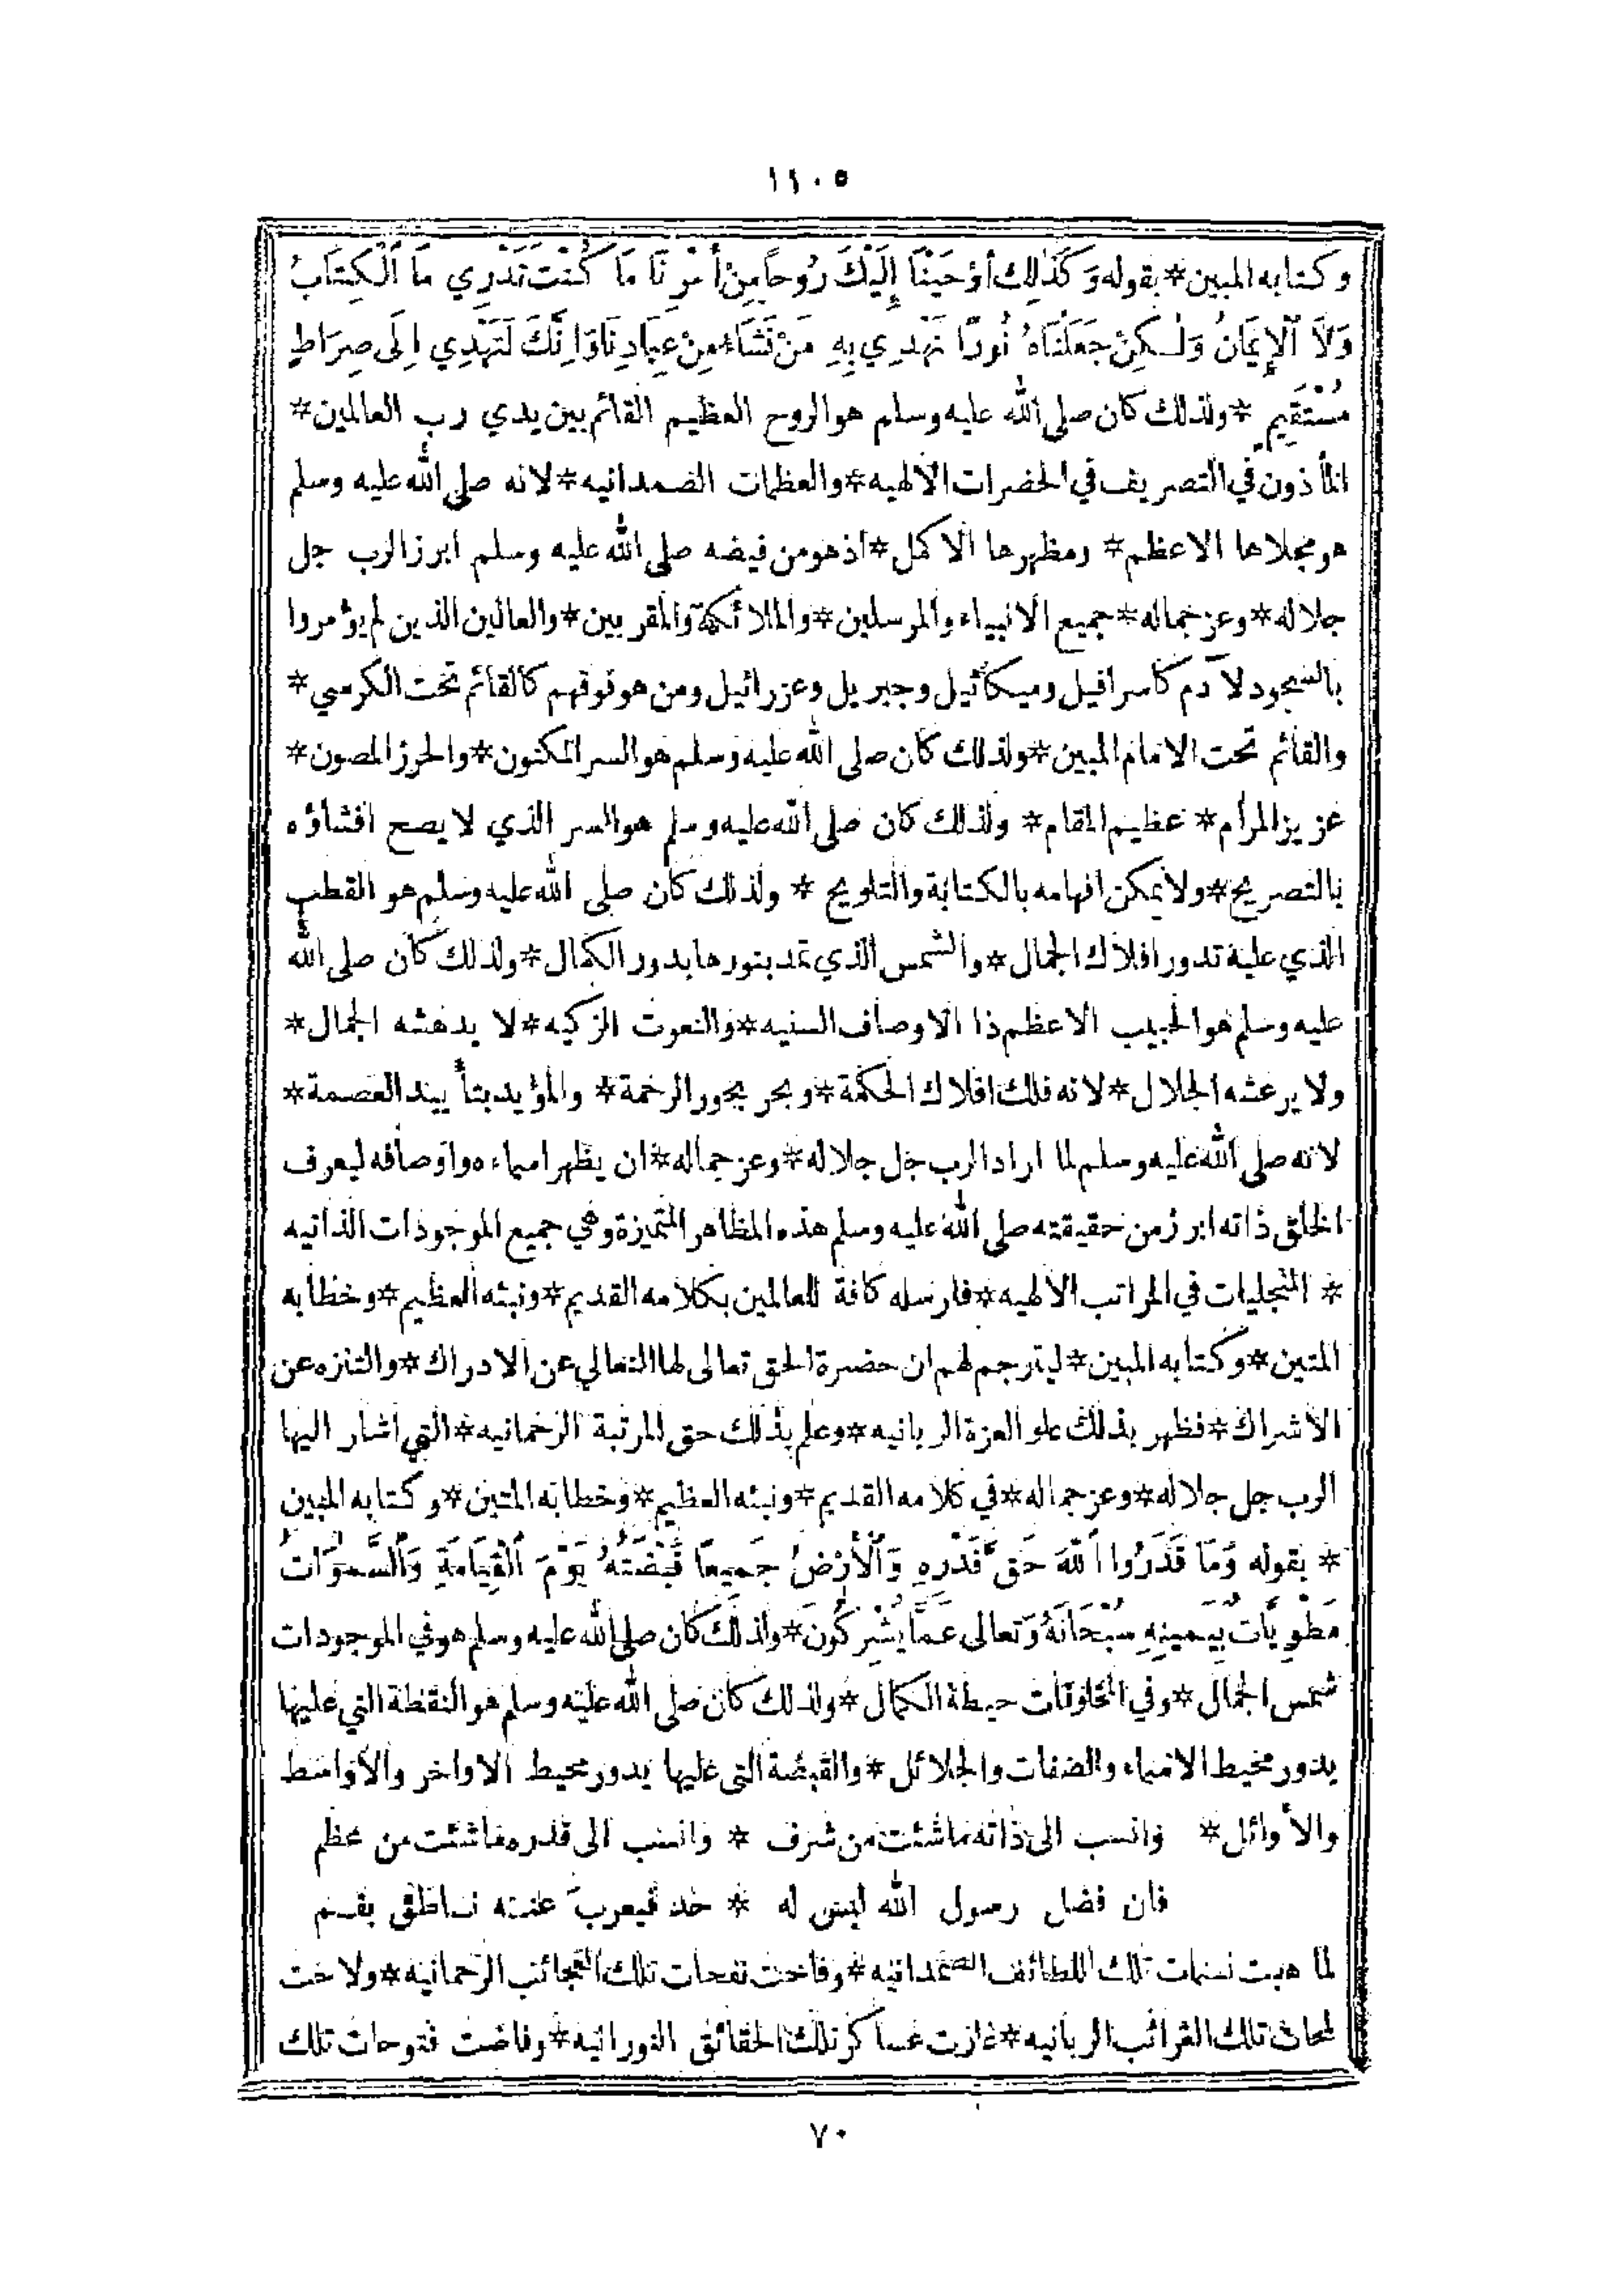 ١١٠٥
وكتابه المبين * بقوله وَكَذٰلِكَ أَوْحَيْنَا إِلَيْكَ رُوحاً مِنْ أَمْرِنَا مَا كُنْتَ تَدْرِي مَا ٱلْكِتَابُ
وَلَا ٱلْإِيمَانُ وَلٰكِنْ جَعَلْنَاهُ نُورًا نَهْدِي بِهِ مَنْ نَشَاءُ مِنْ عِبَادِنَا وَإِنَّكَ لَتَهْدِي إِلَى صِرَاطٍ
مُسْتَقِيمٍ * ولذلك كان صلى الله عليه وسلم هو الروح العظيم القائم بين يدي رب العالمين *
المأذون في التصريف في الحضرات الالهيه * والعظمات الصمدانيه * لانه صلى الله عليه وسلم
هو مجلاها الاعظم * ومظهرها الاكمل * اذ هو من فيضه صلى الله عليه وسلم ابرز الرب جل
جلاله * وعز جماله * جميع الانبياء والمرسلين * والملائكة والمقربين * والعالين الذين لم يؤمروا
بالسجود لآدم كاسرافيل وميكائيل وجبريل وعزرائيل ومن هو فوقهم كالقائم تحت الكرسي *
والقائم تحت الامام المبين * ولذلك كان صلى الله عليه وسلم هو السر المكنون * والحرز المصون *
عزيز المرام * عظيم المقام * ولذلك كان صلى الله عليه وسلم هو السر الذي لا يصح افشاؤه
بالتصريح * ولا يمكن افهامه بالكتابة والتلويح * ولذلك كان صلى الله عليه وسلم هو القطب
الذي عليه تدور افلاك الجمال * والشمس الذي تمد بنورها بدور الكمال * ولذلك كان صلى الله
عليه وسلم هو الحبيب الاعظم ذا الاوصاف السنيه * والنعوت الزكيه * لا يدهشه الجمال *
ولا يرعشه الجلال * لانه فلك افلاك الحكمة * وبحر بحور الرحمة * والمؤيد بتأييد العصمة *
لانه صلى الله عليه وسلم لما اراد الرب جل جلاله * وعز جماله * ان يظهر اسماءه واوصافه ليعرف
الخلق ذاته ابرز من حقيقته صلى الله عليه وسلم هذه المظاهر المتميزة وهي جميع الموجودات الذاتيه
* المتجليات في المراتب الالهيه * فارسله كافة للعالمين بكلامه القديم * ونبئه العظيم * وخطابه
المتين * وكتابه المبين * ليترجم لهم ان حضرة الحق تعالى لها التعالي عن الادراك * والتنزه عن
الاشراك * فظهر بذلك علو العزة الربانيه * وعلم بذلك حق المرتبة الرحمانيه * التي اشار اليها
الرب جل جلاله * وعز جماله * في كلامه القديم * ونبئه العظيم * وخطابه المتين * وكتابه المبين
* بقوله وَمَا قَدَرُوا ٱللّٰهَ حَقَّ قَدْرِهِ وَٱلْأَرْضُ جَمِيعًا قَبْضَتُهُ يَوْمَ ٱلْقِيَامَةِ وَٱلسَّمٰوَاتُ
مَطْوِيَّاتٌ بِيَمِينِهِ سُبْحَانَهُ وَتَعالى عَمَّا يُشْرِكُونَ * ولذلك كان صلى الله عليه وسلم هو في الموجودات
شمس الجمال * وفي المخلوقات حيطة الكمال * ولذلك كان صلى الله عليه وسلم هو النقطة التي عليها
يدور محيط الاسماء والصفات والجلائل * والقبضة التي عليها يدور محيط الاواخر والاواسط
والأوائل * وانسب الى ذاته ما شئت من شرف * وانسب الى قدره ما شئت من عظم
فان فضل رسول الله ليس له * حد فيعرب عنه ناطق بفم
لما هبت نسمات تلك اللطائف الصمدانيه * وفاحت نفحات تلك العجائب الرحمانيه * ولاحت
لمحات تلك الغرائب الربانيه * غازت عساكر تلك الحقائق النورانيه * وفاضت فتوحات تلك
٧٠